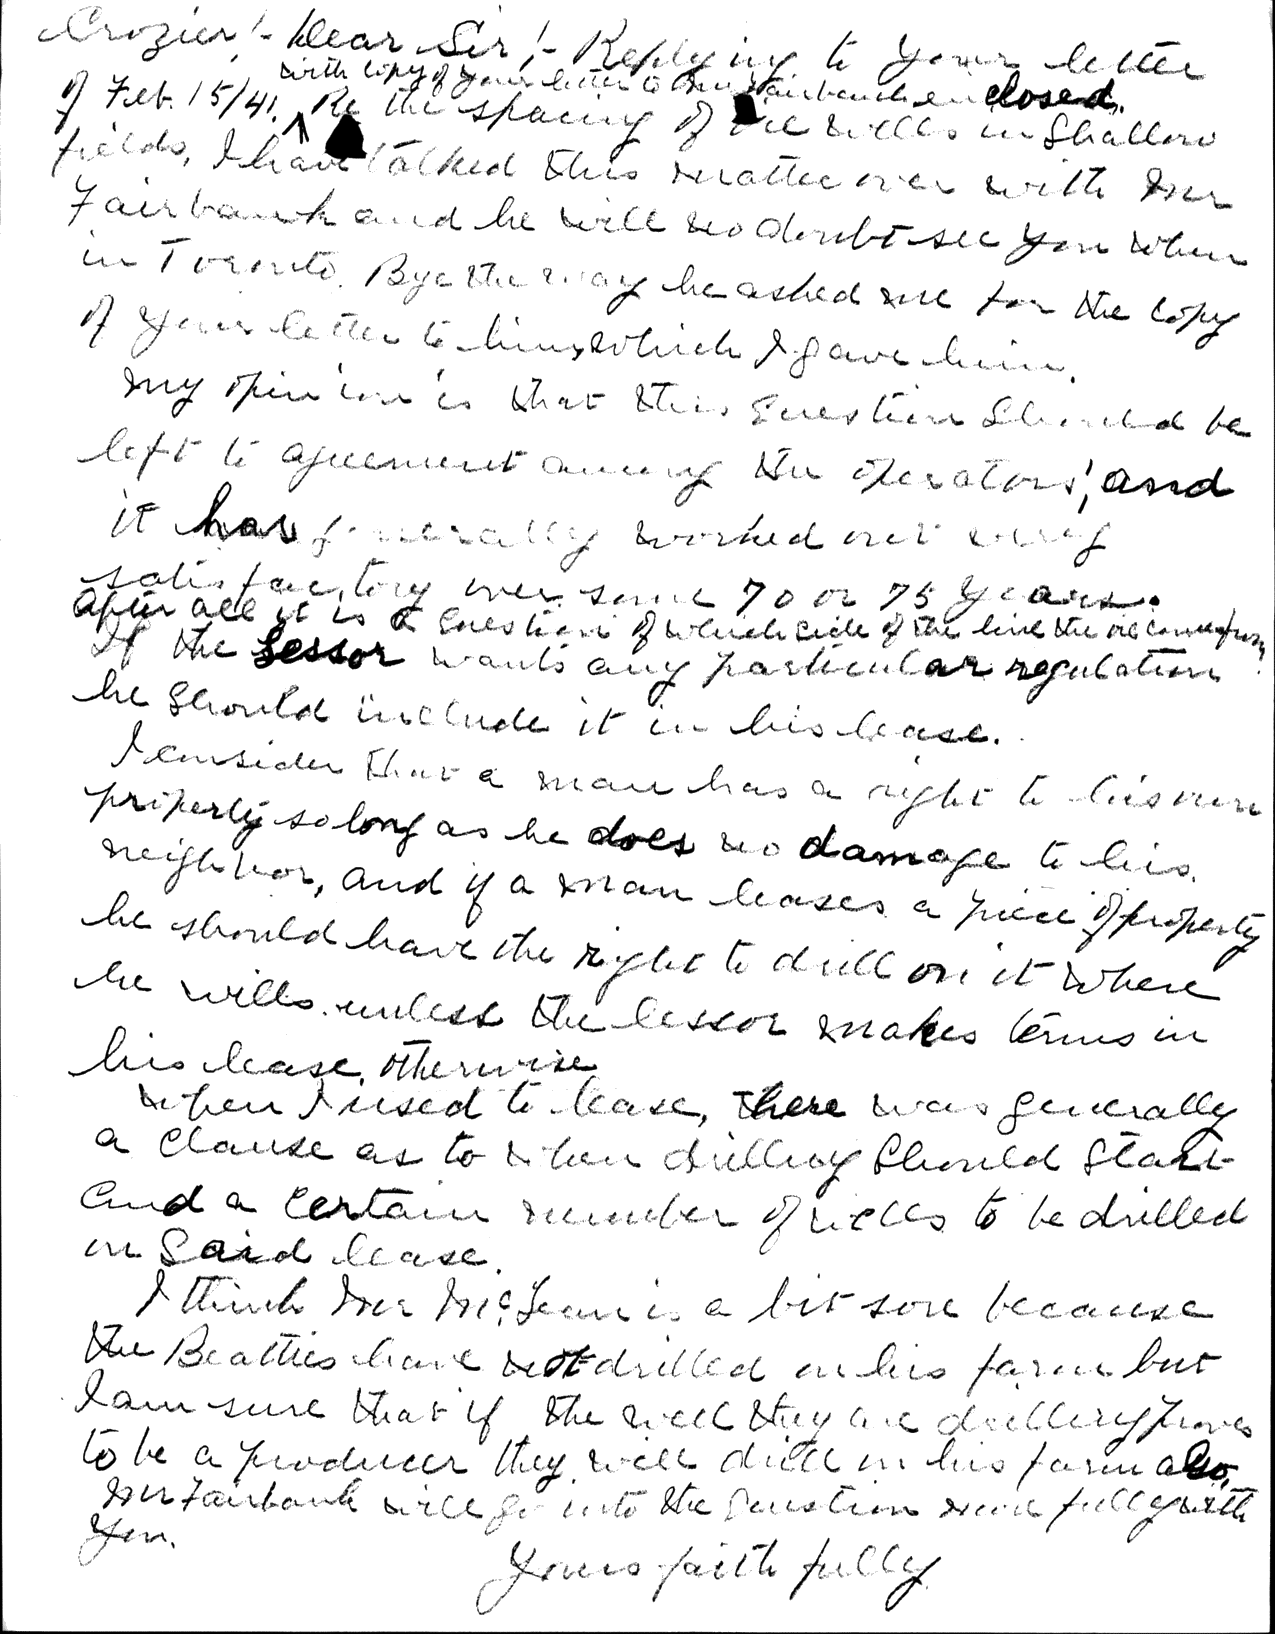 Crozier!- Dear Sir!- Replying to your letter
with copy of your letter to Mr Fairbank enclosed.
of Feb. 15/41. Re the spacing of oil wells in Shallow
fields, I have talked this matter over with Mr
Fairbank and he will no doubt see you when
in Toronto. Bye the way he asked me for the copy
of your letter to him, which I gave him.
My opinion is that this Question Should be
left to agreement among the operators, and
it has generally worked out very
satisfactory over some 70 or 75 years.
After all it is a Question of which side of the line the oil comes from
If the Lessor wants any particular regulation
he Should include it in his lease.
I consider that a man has a right to his own
property so long as he does no damage to his
neighbor, and if a man leases a piece of property
he should have the right to drill on it where
he wills unless the lessor makes terms in
his lease otherwise
When I used to lease, there was generally
a clause as to when drilling Should Start
and a certain number of wells to be drilled
on Said lease.
I think Mr McLean is a bit sore because
the Beatties have not drilled on his farm but
I am sure that if the well they are drilling proves
to be a producer they will drill on his farm also.
Mr Fairbank will go into the Question more fully with
you.
Yours faithfully